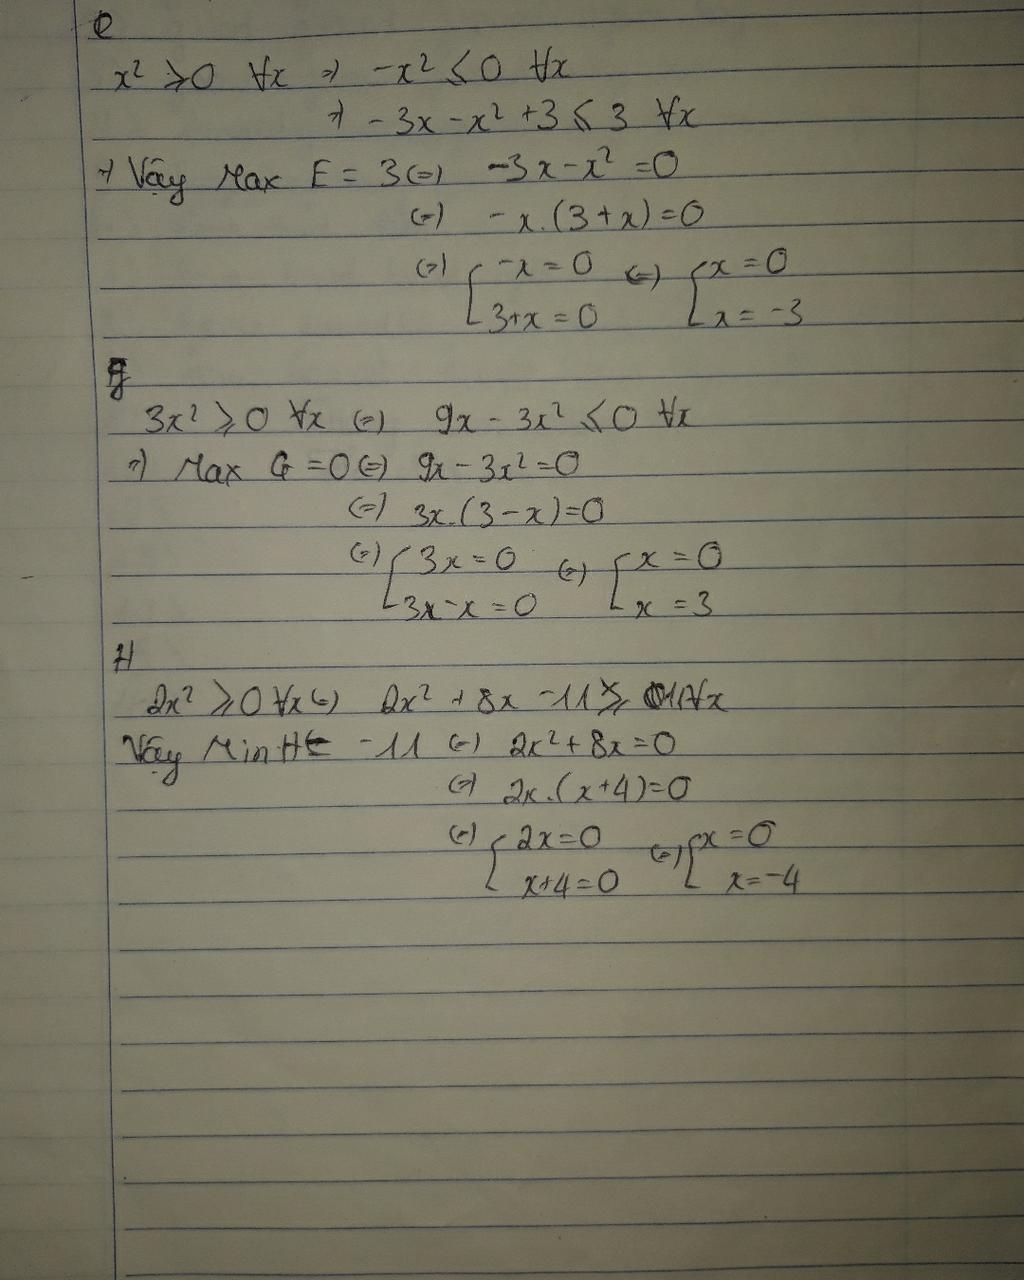 e
x² ≥ 0 ∀x => -x² ≤ 0 ∀x
=> -3x - x² + 3 ≤ 3 ∀x
=> Vậy Max E = 3 (=) -3x - x² = 0
(=) -x.(3+x)=0
(=) [ -x = 0 (=) [ x = 0
3+x = 0 x = -3
3x² ≥ 0 ∀x (=) 9x - 3x² ≤ 0 ∀x
=) Max G = 0 (=) 9x - 3x² = 0
(=) 3x.(3-x)=0
(=) [ 3x = 0 (=) [ x = 0
3x-x = 0 x = 3
H
2x² ≥ 0 ∀x (=) 2x² + 8x - 11 ≥ ∀x
Vậy Min H = -11 (=) 2x² + 8x = 0
(=) 2x.(x+4)=0
(=) [ 2x=0 (=) [ x = 0
x+4=0 x=-4